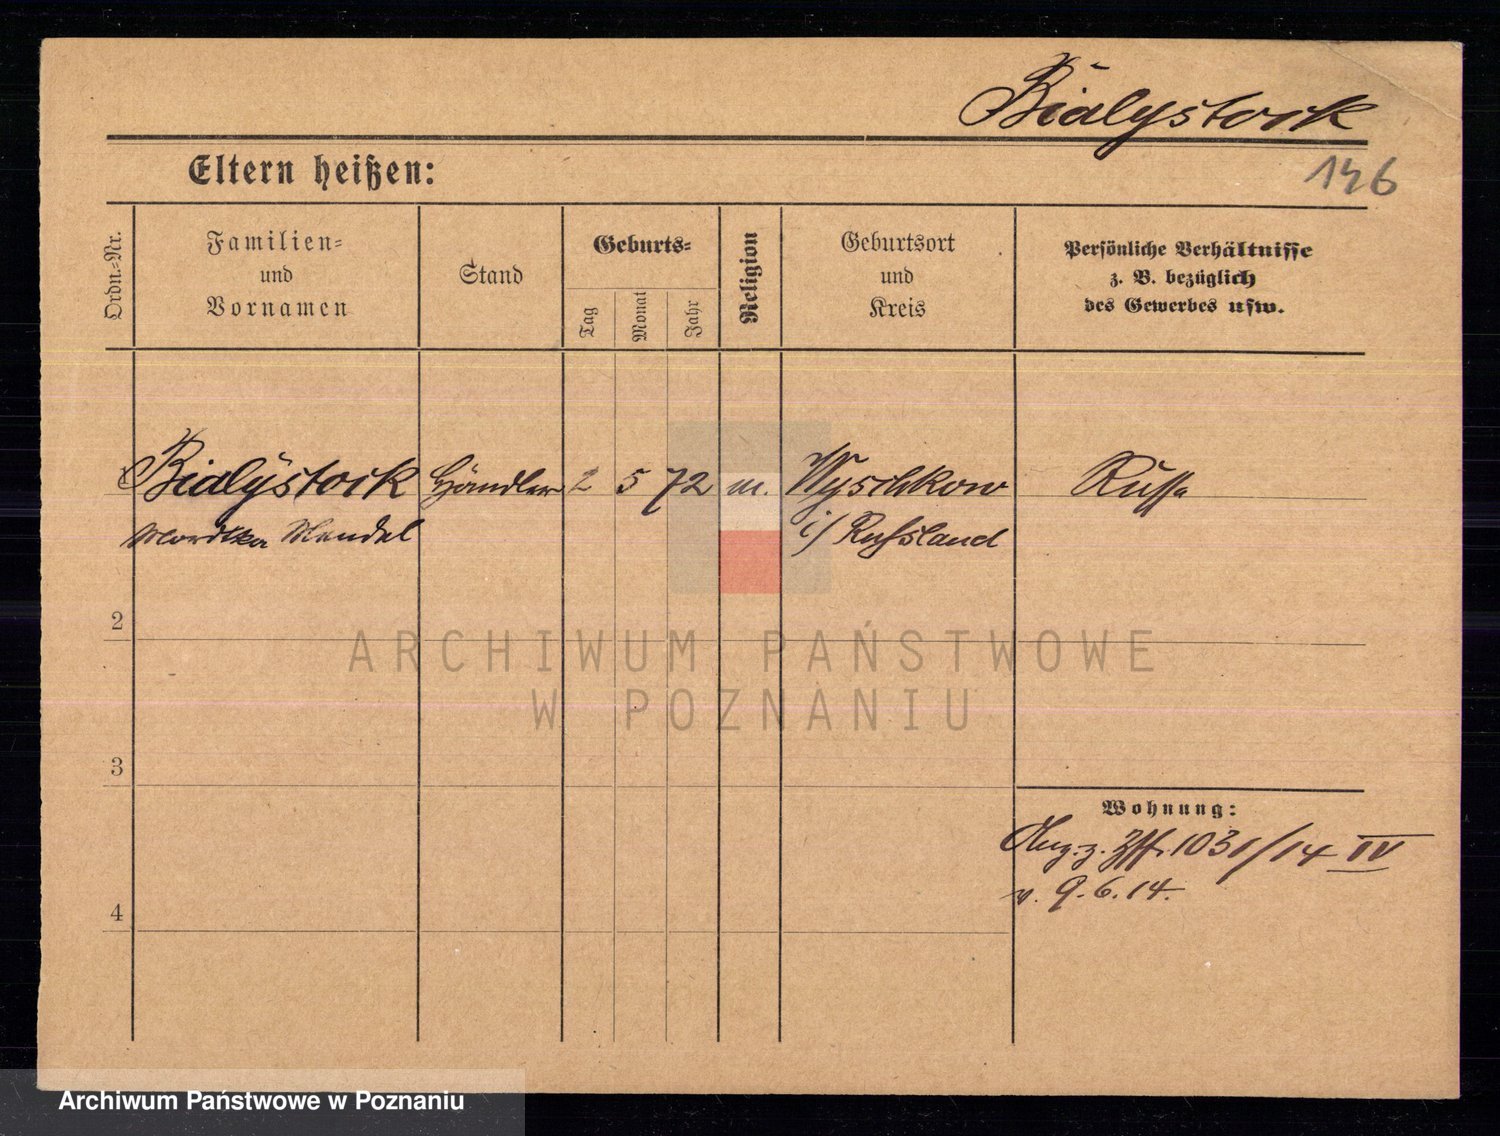 Bialystock
146
Eltern heißen:
Ordn.-Nr.
Familien-
und
Vornamen
Stand
Geburts-
Tag
Monat
Jahr
Religion
Geburtsort
und
Kreis
Persönliche Verhältnisse
z. B. bezüglich
des Gewerbes usw.
Bialystock Händler 2 5 72 m. Wyschkow Russe
Mordka Mendel i/ Russland
2
3
4
Wohnung:
1031/14 IV
v. 9.6.14.
ARCHIWUM PAŃSTWOWE
W POZNANIU
Archiwum Państwowe w Poznaniu